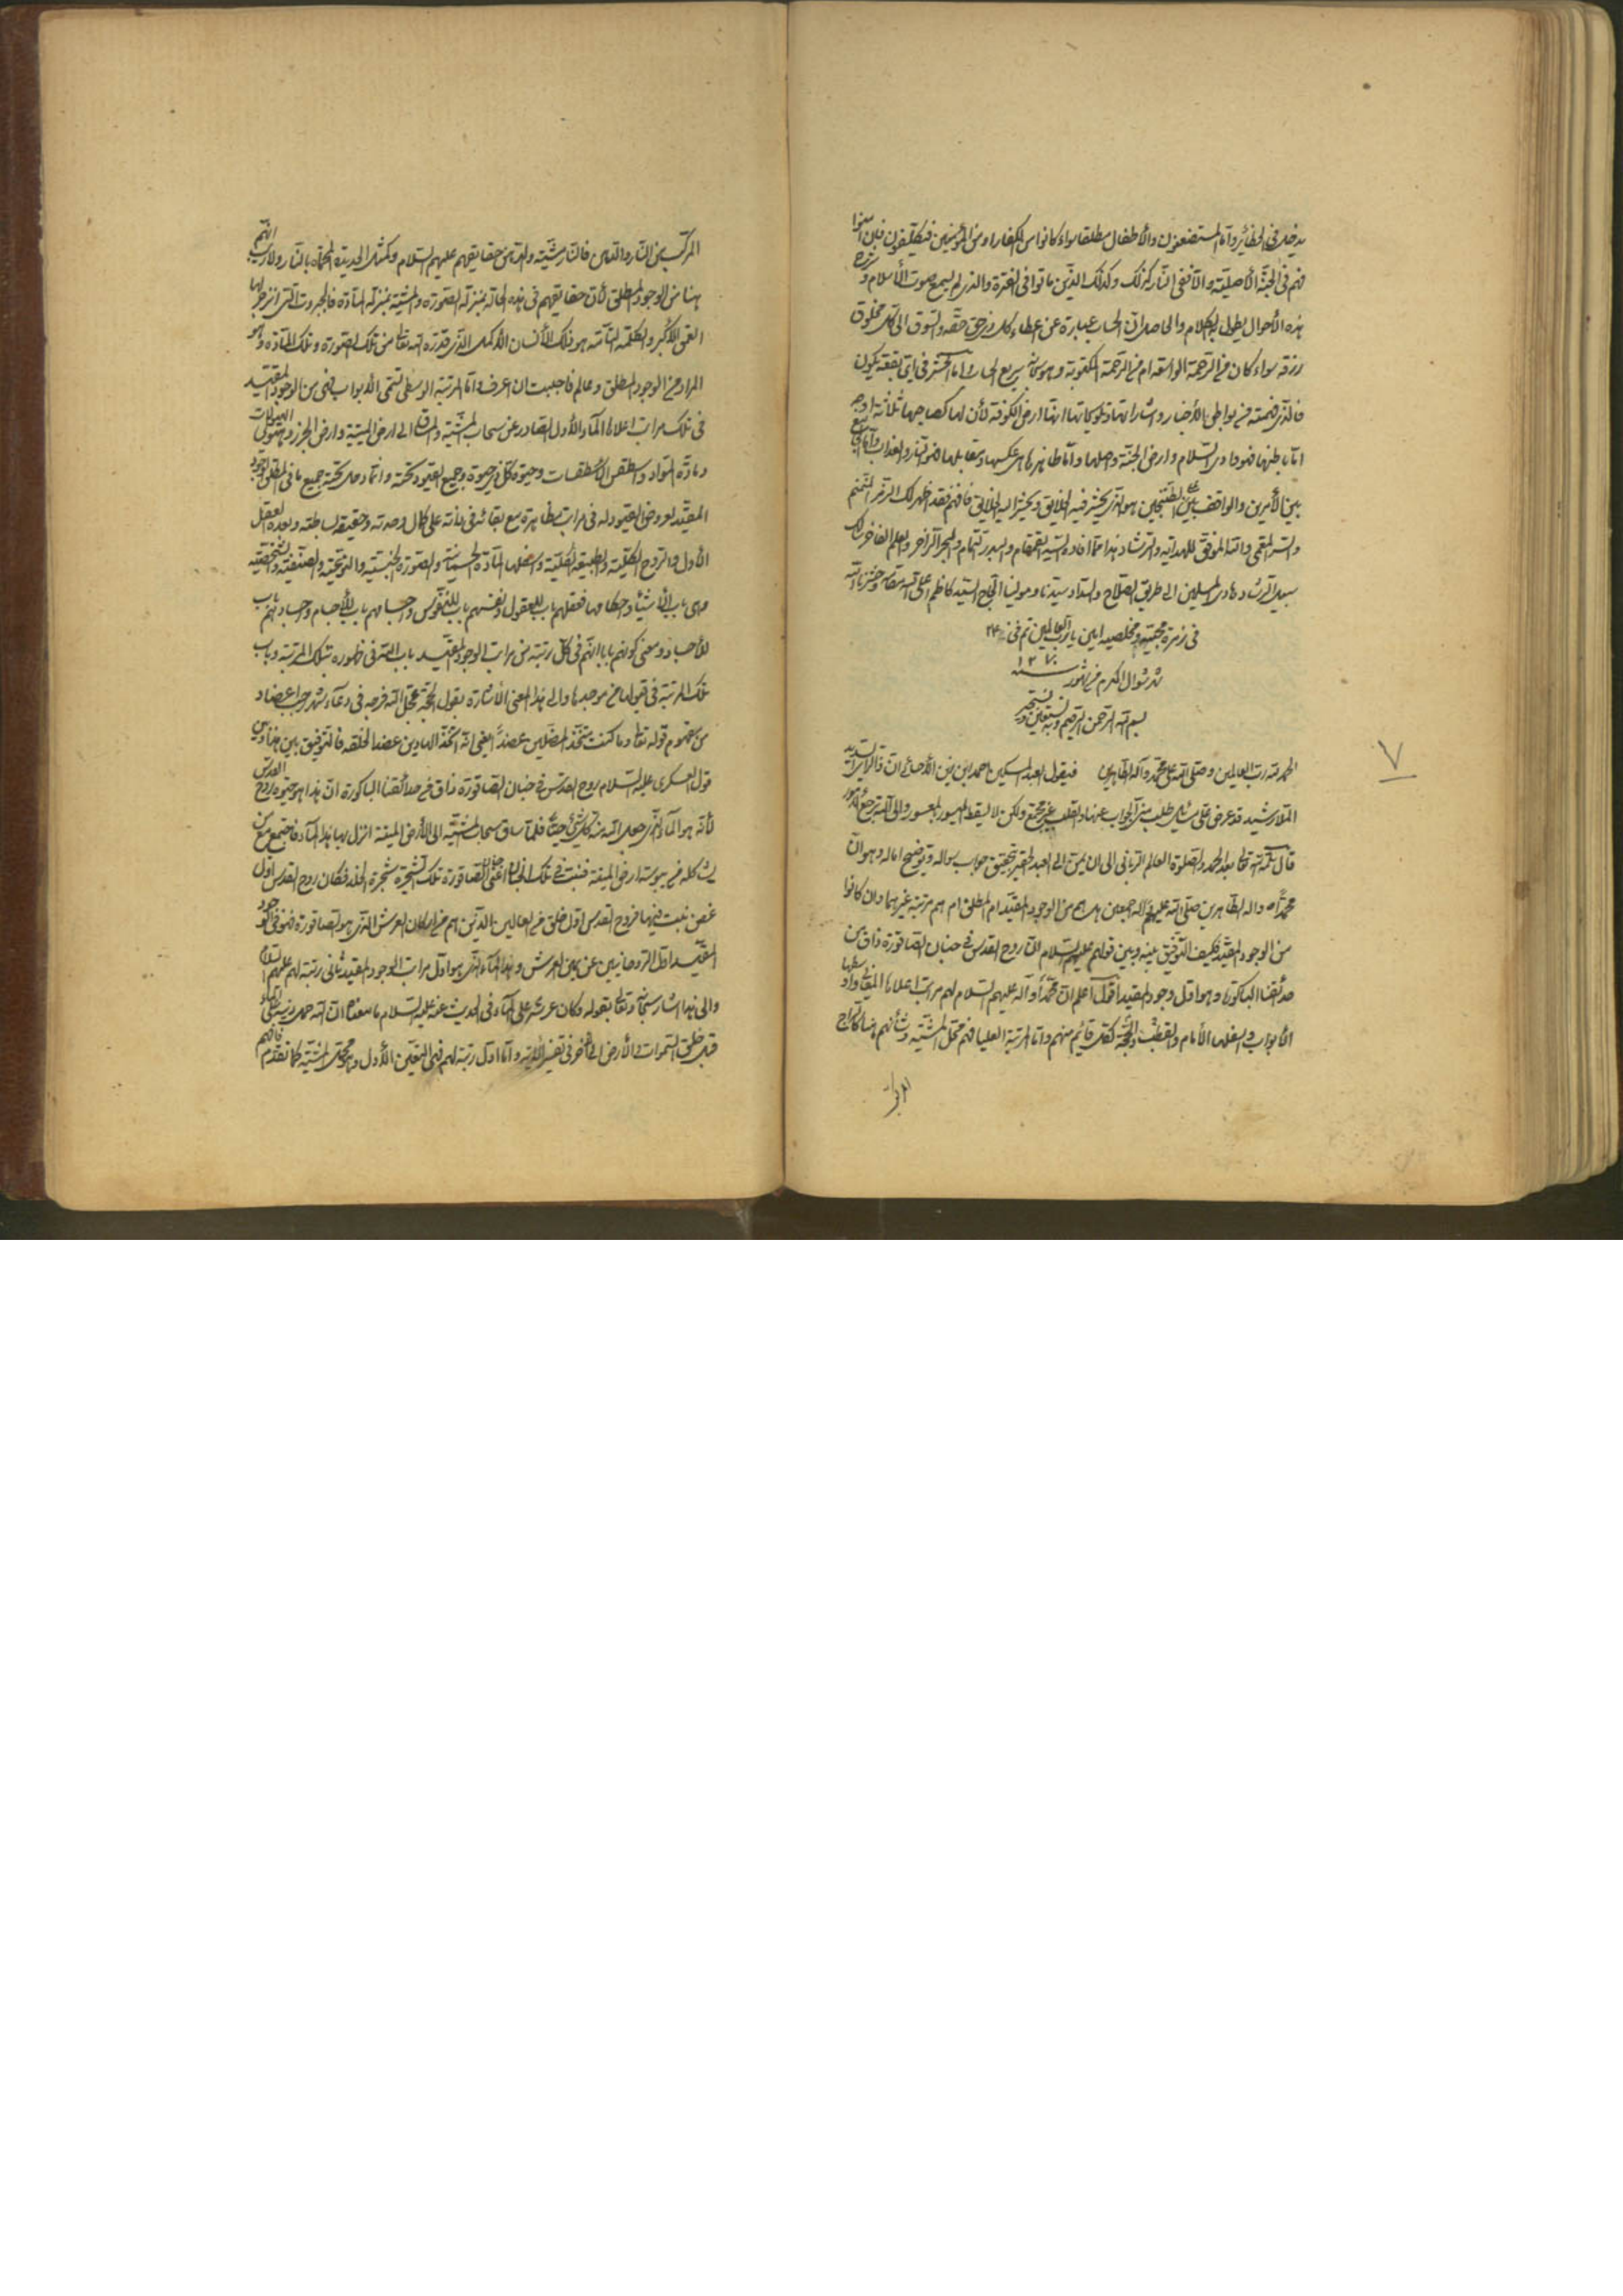 يدخل في الحظائر واما المستضعفون والأطفال مطلقا سواء كانوا من الكفار او من المؤمنين فيكلفون فإن امنوا
فهم في الجنة الأصلية والا ففي النار كذلك وكذلك الذين ماتوا في الفترة والذي لم يسمع صوت الأسلام وشرح
هذه الأحوال يطول به الكلام والحاصل ان الحساب عبارة عن اعطاء كل ذي حق حقه والسوق الى كل مخلوق
رزقه سواء كان من الرحمة الواسعة ام من الرحمة المكتوبة وهو سريع الحساب واما الحشر في اي بقعة يكون
فالذي فهمته من بواطن الأخبار واشاراتها وتلويحاتها انها ارض الكوفة لأن لها كصاحبها ثلاثة اوجه
اما باطنها فهو وادي السلام وارض الجنة واصلها واما ظاهرها عكسها ومقابلها فهو النار والعذاب واما الجامع
بين الأمرين والواقف بين الطتنجين هو الذي يحشر فيه الخلايق ويحشر اليه الخلايق فافهم فقد اظهر لك الرمز المنمنم
والسر المعمى والله الموفق للهداية والرشاد هذا مما افاده السيد القمقام والبدر التمام والبحر الزاخر والعلم الفاخر سالك
سبيل الرشاد وهادي المسلمين الى طريق الصلاح والسداد سيدنا ومولينا الحاج السيد كاظم اعلى الله مقامه وحشرنا الله
في زمرة محبيه ومخلصيه امين يا رب العالمين تم في ٢٤
شهر شوال المكرم من شهور سنه ١٢٧٠
بسم الله الرحمن الرحيم وبه نستعين ونستجير
الحمد لله رب العالمين وصلى الله على محمد وآله الطاهرين فيقول العبد المسكين احمد ابن زين الأحسائي ان ذا الرأي السديد
الملا رشيد قد عرض على مسائل طلب مني الجواب عنها والقلب غير مجتمع ولكن لا يسقط الميسور بالمعسور والى الله ترجع الأمور
قال سلمه الله تعالى بعد الحمد والصلوة العالم الرباني الى ان يمن الى العبد الحقير بتحقيق جواب سواله وتوضيح اماله وهو ان
محمدا ص واله الطاهرين صلى الله عليهم اجمعين هل هم من الوجود المقيد ام المطلق ام هم مرتبة غيرهما وان كانوا
من الوجود المقيد فكيف التوفيق بينه وبين قولهم عليهم السلام ان روح القدس في جنان الصاقورة ذاق من
حدائقنا الباكورة وهو اول وجود المقيد اقول اعلم ان محمدا وآله عليهم السلام لهم مراتب اعلاها المعاني واوسطها
الأبواب واسفلها الأمام والقطب والحجة كقائم منهم واما المرتبة العليا فهم محل المشية وشأنهم هنا كالسراج
المركب
المركب من النار والدهن فالنار مشية والدهن حقايقهم عليهم السلام وكمثل الحديدة المحماة بالنار ولا ريب انهم
هنا من الوجود المطلق لأن حقايقهم في هذه الحالة بمنزلة الصورة والمشية بمنزلة المادة فالجبروت التي انزجر لها
العمق الأكبر والكلمة التامة هو ذلك الأنسان الأكمل الذي قدره الله تعالى من تلك الصورة وتلك المادة وهو
المراد من الوجود المطلق وعالم فاحببت ان اعرف واما المرتبة الوسطى تسمى الأبواب فهى من الوجود المقيد
في تلك مراتب اعلاها الماء الأول الصادر عن سحاب المشية والمساق الى ارض الميتة وارض الجرز وهيولى الهيولات
ومادة المواد واسطقس الأسطقسات وحيوة كل ذي حيوة وجميع القيود تحته وانما دخل تحته جميع ما في المطلق الوجود
المقيد لعروض القيود له في مراتب مظاهره مع بقائه في ذاته على كمال وحدته وحقيقة بساطته وبعده العقل
الأول والروح الكلية والطبيعة الكلية واسفلها المادة الجسمانية والصورة الجنسية والنوعية والصنفية والشخصية
وهى باب الأشياء واحكامها فعقلهم باب للعقول ونفسهم باب للنفوس وجسامهم باب للأجسام واجسادهم باب
للأجساد ومعنى كونهم بابا انهم في كل رتبة من مراتب الوجود المقيد باب الله في ظهوره بتلك المرتبة وباب
تلك المرتبة في قبولها من موجدها والى هذا المعنى الأشارة بقول الحجة عجل الله فرجه في دعاء شهر رجب اعضاد
من مفهوم قوله تعالى وما كنت متخذ المضلين عضدا يعني انه اتخذ الهادين عضدا لخلقه فالتوفيق بين هذا وبين
قول العسكري عليه السلام روح القدس في جنان الصاقورة ذاق من حدائقنا الباكورة ان هذا هو حيوة روح القدس
لأنه هو الماء الذي جعل الله منه كل شئ حيا فلما ساق سحاب المشية الى الأرض الميتة انزل بها هذا الماء فاجتمع مع
يشاكله من يبوسة ارض الميتة فنبتت في تلك الجنان اعني جنان الصاقورة تلك الشجرة شجرة الخلد فكان روح القدس اول
غصن نبت فيها فروح القدس اول خلق من العالين الذين هم من اركان العرش الذي هو الصاقورة فهو في الوجود
المقيد اول الروحانيين عن يمين العرش وهذا الماء الذي هو اول مراتب الوجود المقيد ثاني رتبة لهم عليهم السلام
والى هذا اشار سبحانه وتعالى بقوله وكان عرشه على الماء وفي الحديث عنه عليه السلام ما معناه ان الله حمل دينه على الماء
قبل خلق السموات والأرض الى آخر في تفسير الآية واما اول رتبة لهم فهى التعين الأول وهو محل المشية كما تقدم فافهم
٧